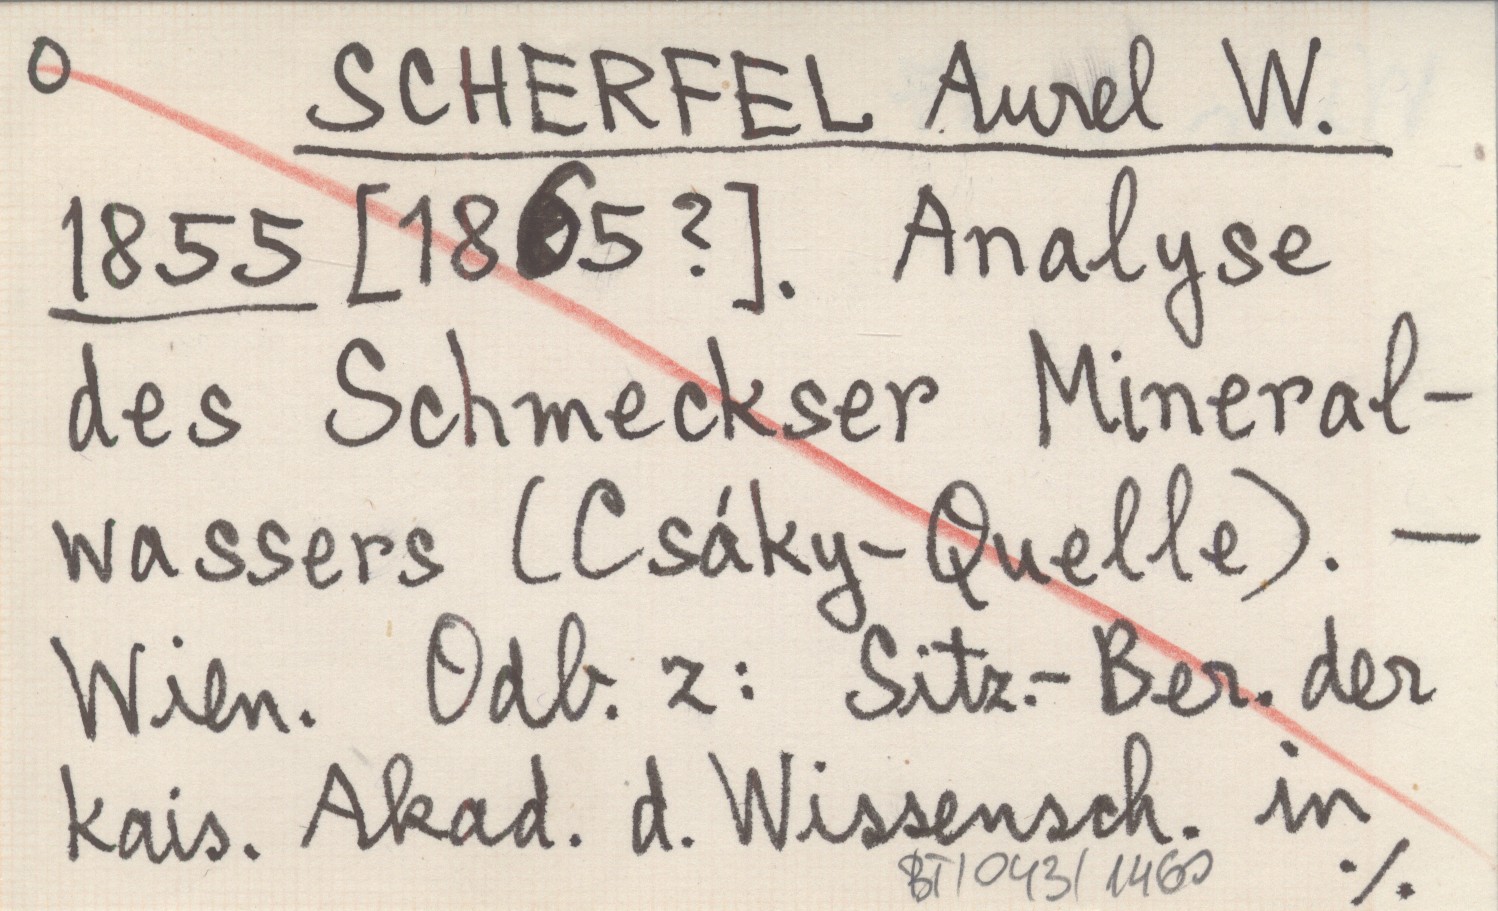 O SCHERFEL Aurel W.
1855 [1865?]. Analyse
des Schmeckser Mineral-
wassers (Csáky-Quelle). —
Wien. Odb. z: Sitz.-Ber. der
kais. Akad. d. Wissensch. in
./.
BT/043/1460